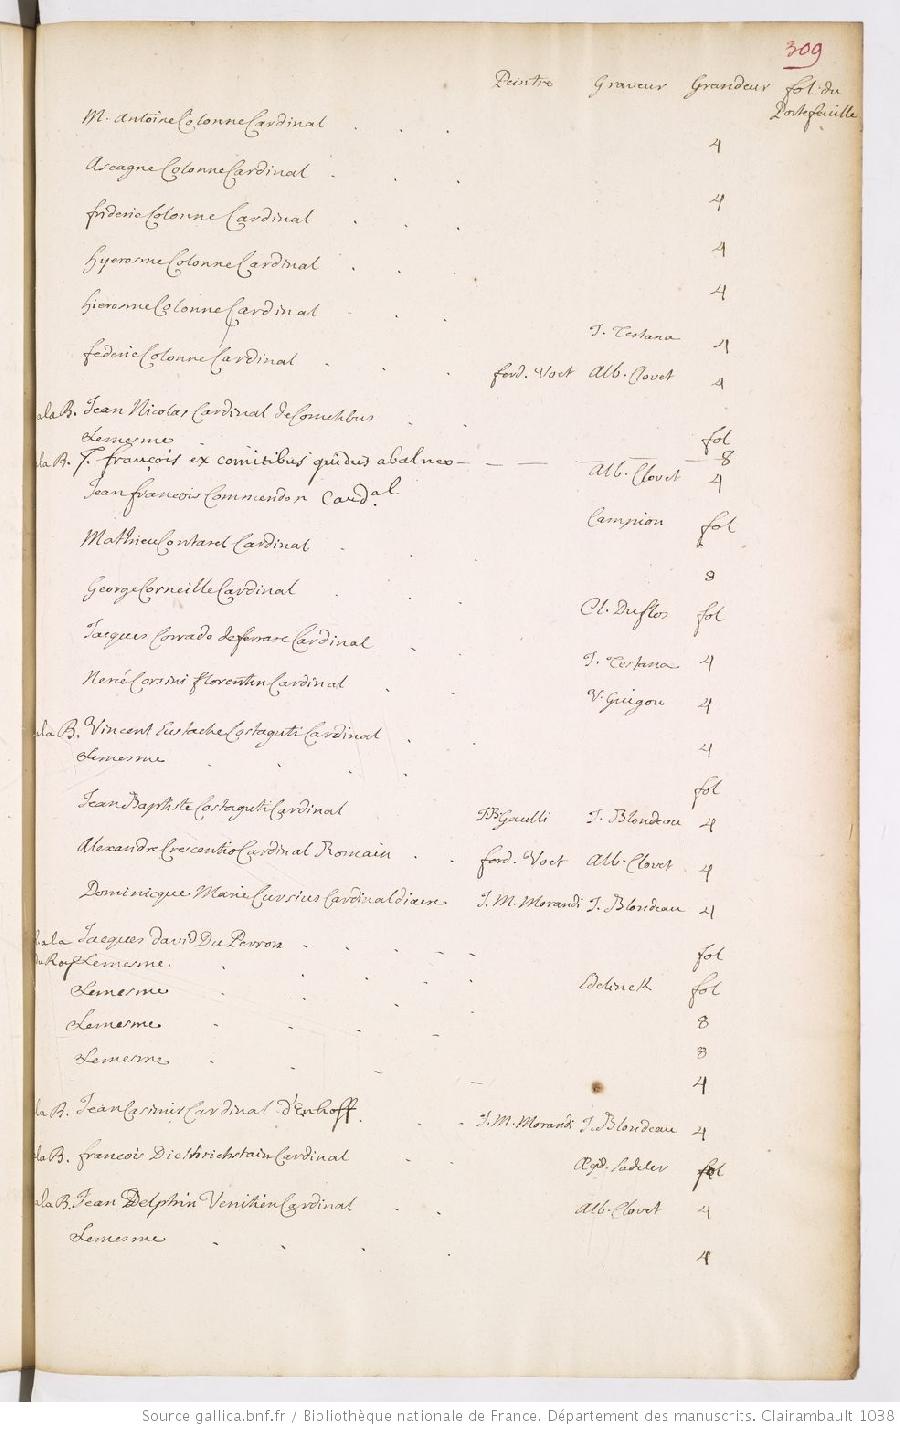 309
Peintre Graveur Grandeur fol. du Portefeuille
M. Antoine Colonne Cardinal . . . 4
Ascagne Colonne Cardinal . . . 4
frideric Colonne Cardinal . . . 4
hyerosme Colonne Cardinal . . 4
hierosme Colonne Cardinal . . J. Testana 4
federic Colonne Cardinal . . . ferd. Voet Alb. Clouet 4
ala B. Jean Nicolas Cardinal de Comitibus . . fol
Lemesme . 8
ala B. J. françois ex comitibus guidus abalneo — — — Alb. Clouet 4
Jean françois Commendon Card.al Campion fol
Mathieu Contarel Cardinal . . 8
George Corneille Cardinal . . Cl. Duflos fol
Jacques Corrado de ferrare Cardinal . . J. Testana 4
René Corsini florentin Cardinal . . V. Guigou 4
ala B. Vincent Eustache Costaguti Cardinal . . 4
Lemesme . . . . fol
Jean Baptiste Costaguti Cardinal JB Gaulli J. Blondeau 4
Alexandre Crescentio Cardinal Romain . . ferd. Voet Alb. Clouet 4
Dominicque Marie Cursius Cardinal diacre J. M. Morandi J. Blondeau 4
Jacques david Du Perron . . . . . fol
du Roy Lemesme . . . . . Edelinck fol
Lemesme . . . . 8
Lemesme . . . . 8
Lemesme . . . 4
ala B. Jean Casimir Cardinal d'Enhoff . . . J. M. Morandi J. Blondeau 4
ala B. françois Diethrichstain Cardinal . . Ægid. Sadeler fol
ala B. Jean Delphin Venitien Cardinal . . Alb. Clouet 4
Lemesme . . . . 4
Source gallica.bnf.fr / Bibliothèque nationale de France. Département des manuscrits. Clairambault 1038